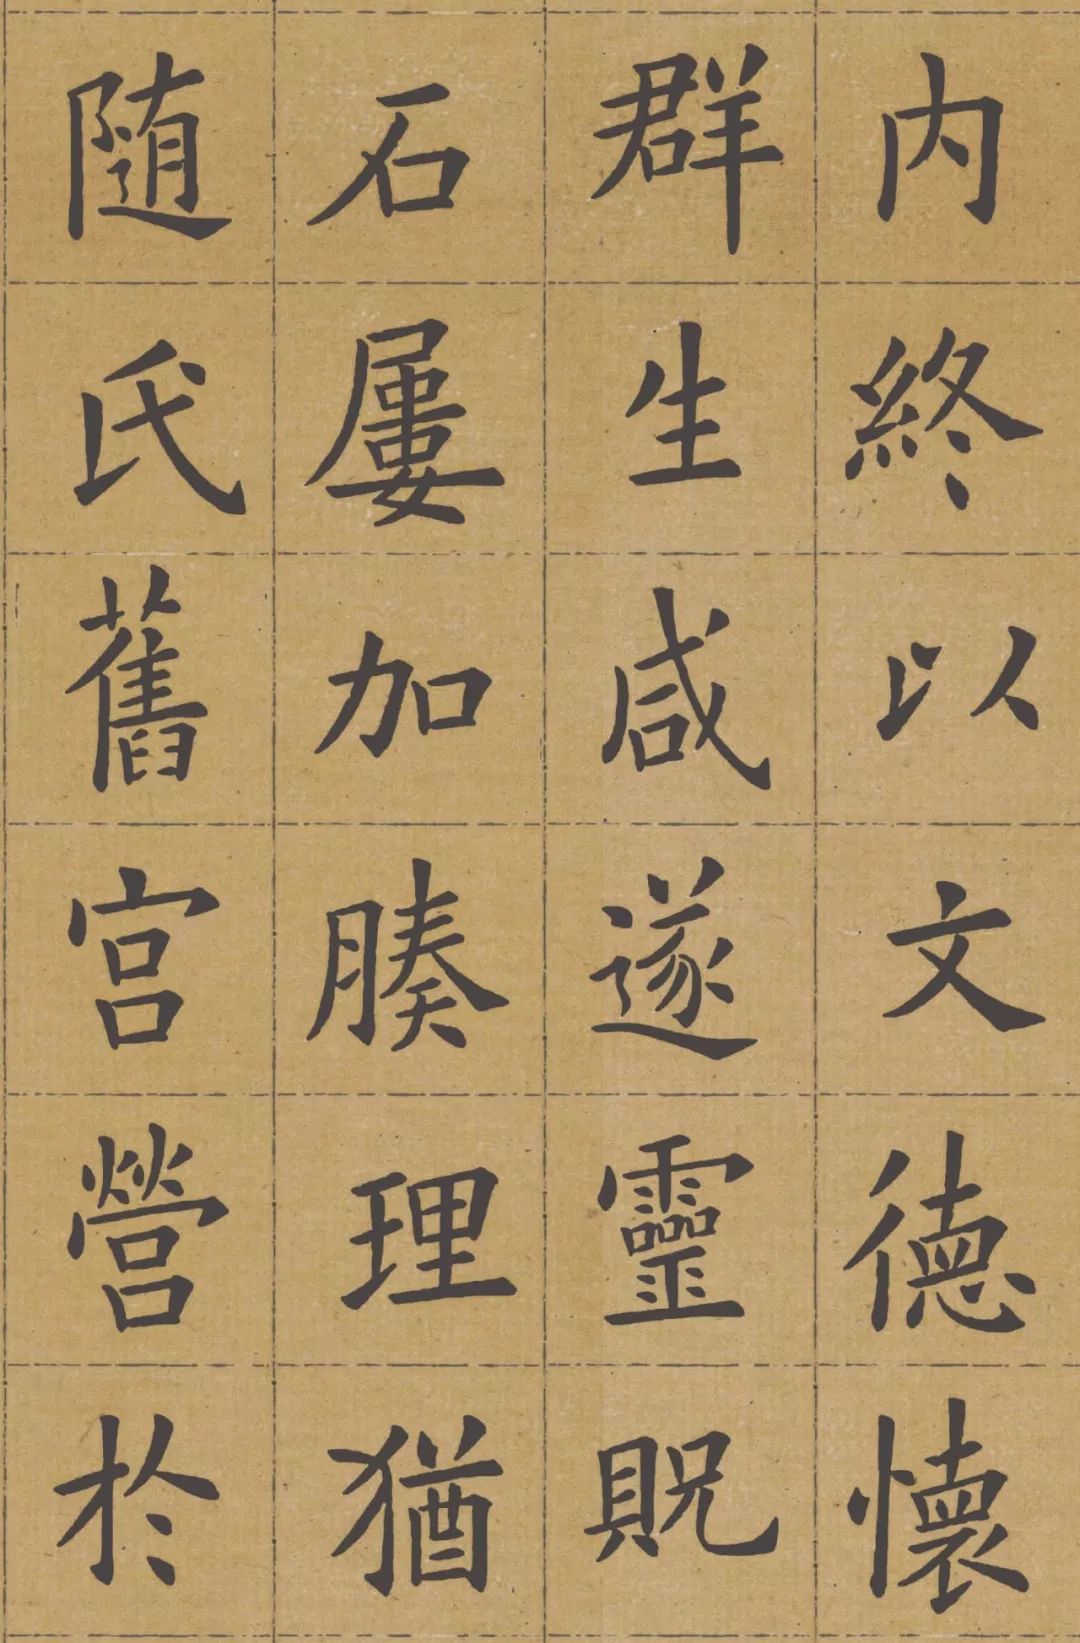 内終以文德懷
群生咸遂靈貺
石屢加腠理猶
随氏舊宫營於